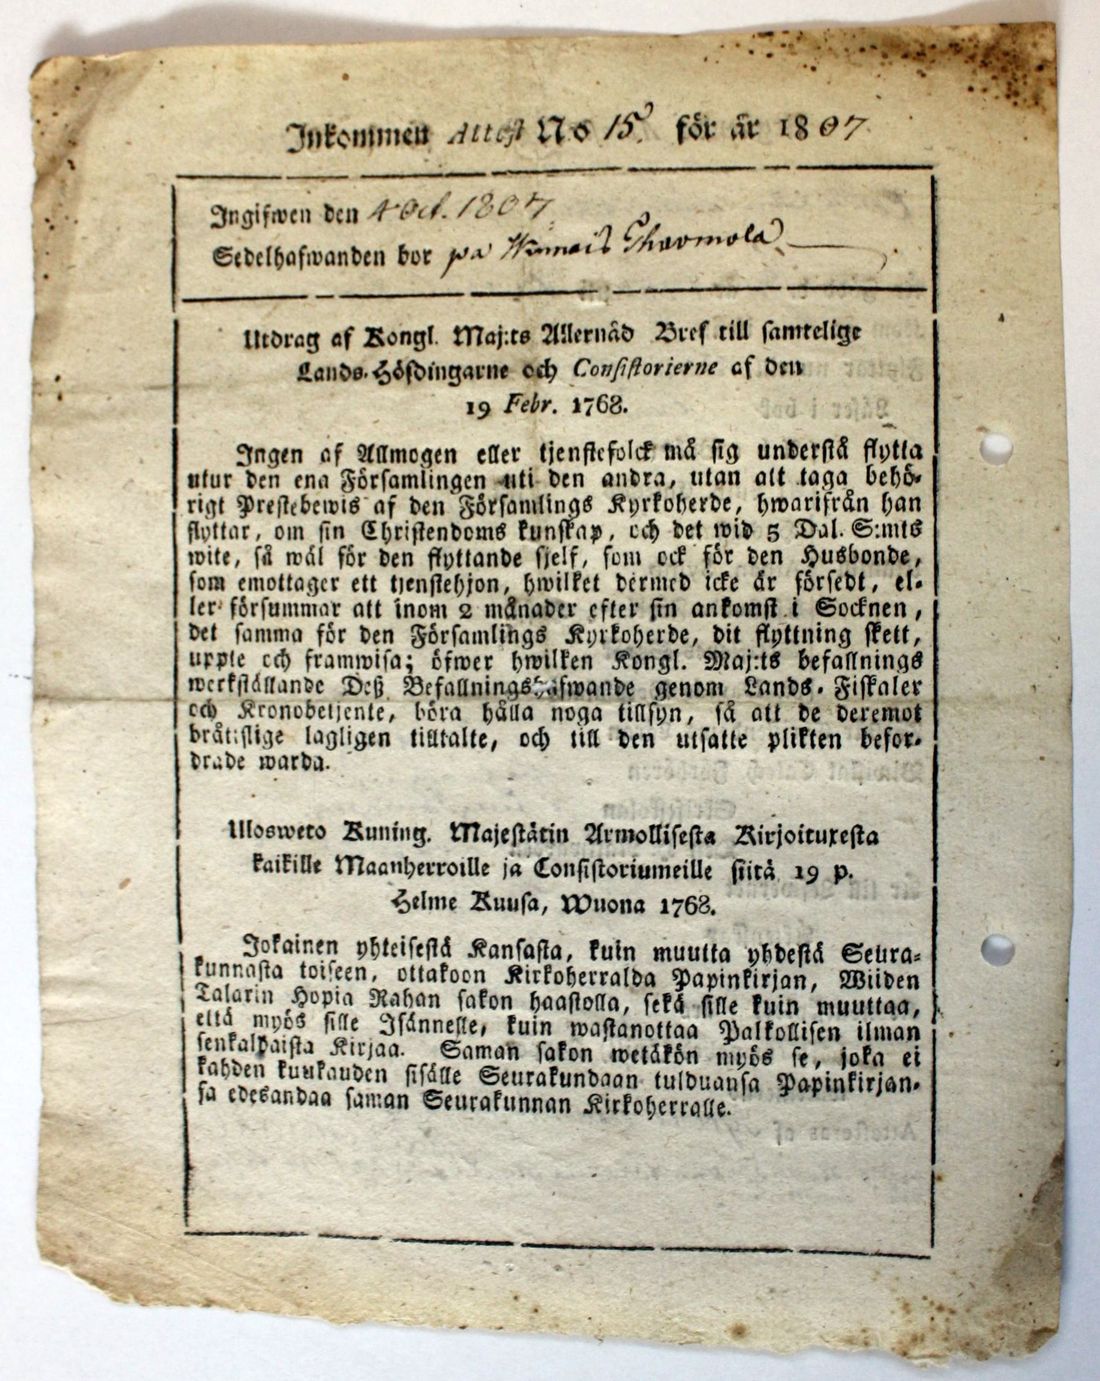 Inkommen Attest No 15. för år 1807
Ingifwen den 4 Oct. 1807
Sedelhafwanden bor på
Utdrag af Kongl. Maj:ts Allernåd Bref till samtelige
Lands-Höfdingarne och Consistorierne af den
19 Febr. 1768.
Ingen af Allmogen eller tjenstefolck må sig understå flytta
utur den ena Församlingen uti den andra, utan att taga behö-
rigt Prestebewis af den Församlings Kyrkoherde, hwarifrån han
flyttar, om sin Christendoms kunskap, och det wid 5 Dal. S:mts
wite, så wäl för den flyttande sjelf, som ock för den Husbonde,
som emottager ett tjenstehjon, hwilket dermed icke är försedt, el-
ler försummar att inom 2 månader efter sin ankomst i Socknen,
det samma för den Församlings Kyrkoherde, dit flyttning skett,
uppte och framwisa; öfwer hwilken Kongl. Maj:ts befallnings
werkställande Deß Befallningshafwande genom Lands-Fiskaler
och Kronobetjente, böra hålla noga tillsyn, så att de deremot
bråtslige lagligen tilltalte, och till den utsatte plikten befor-
drade warda.
Ulosweto Kuning. Majestätin Armollisesta Kirjoituxesta
kaikille Maanherroille ja Consistoriumeille siitä 19 p.
Helme Kuusa, Wuona 1768.
Jokainen yhteisestä Kansasta, kuin muutta yhdestä Seura-
kunnasta toiseen, ottakoon Kirkoherralda Papinkirjan, Wiiden
Talarin Hopia Rahan sakon haastolla, sekä sille kuin muuttaa,
että myös sille Isännelle, kuin wastanottaa Palkollisen ilman
senkaltaista Kirjaa. Saman sakon wetäkön myös se, joka ei
kahden kuukauden sisälle Seurakundaan tulduansa Papinkirjan-
sa edesandaa saman Seurakunnan Kirkoherralle.